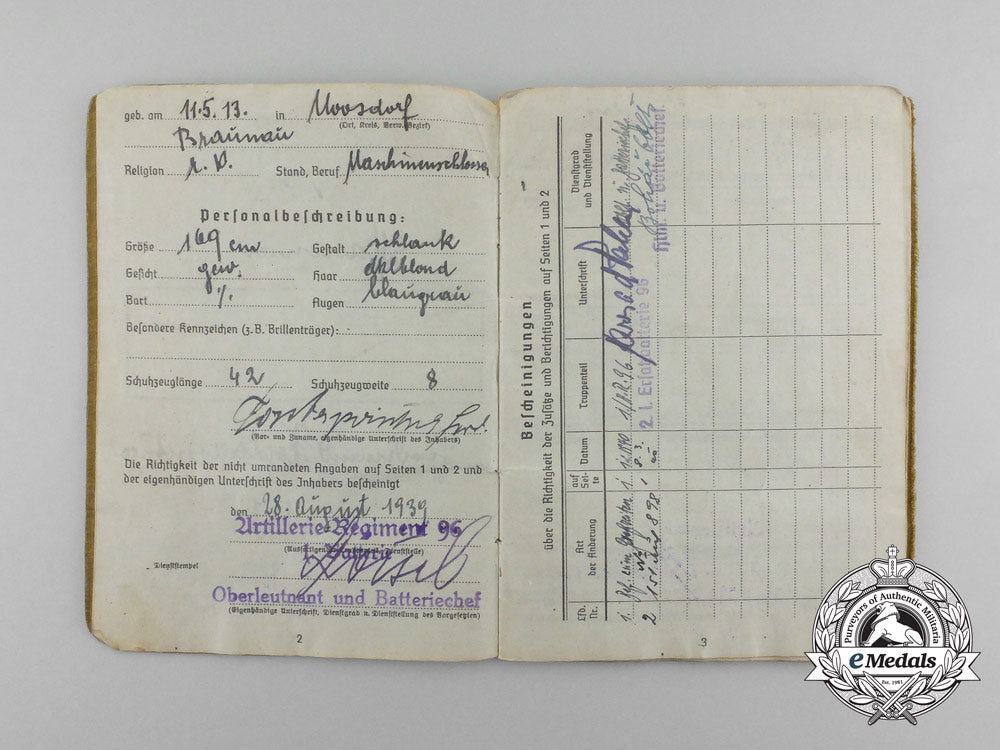 geb. am 11.5.13. in Moosdorf
(Ort, Kreis, Verw.-Bezirk)
Braunau
Religion r. k. Stand, Beruf Maschinenschlosser
Personalbeschreibung:
Größe 169 cm Gestalt schlank
Gesicht gew. Haar dklblond
Bart ./. Augen blaugrau
Besondere Kennzeichen (z.B. Brillenträger):
Schuhzeuglänge 42 Schuhzeugweite 8
(Vor- und Zuname, eigenhändige Unterschrift des Inhabers)
Die Richtigkeit der nicht umrandeten Angaben auf Seiten 1 und 2 und
der eigenhändigen Unterschrift des Inhabers bescheinigt
den 28. August 1939
Artillerie-Regiment 96
1. Batterie
Dienststempel
Oberleutnant und Batteriechef
(Eigenhändige Unterschrift, Dienstgrad u. Dienststellung des Vorgesetzten)
2
Bescheinigungen
über die Richtigkeit der Zusätze und Berichtigungen auf Seiten 1 und 2
Lfd. Nr.
Art der Änderung
auf Seite
Datum
Truppenteil
Unterschrift
Dienstgrad und Dienststellung
1.
1.
2
2. l. Ersatzbatterie 96
Hptm. u. Batteriechef
3
Purveyors of Authentic Militaria
eMedals
Est. 1981